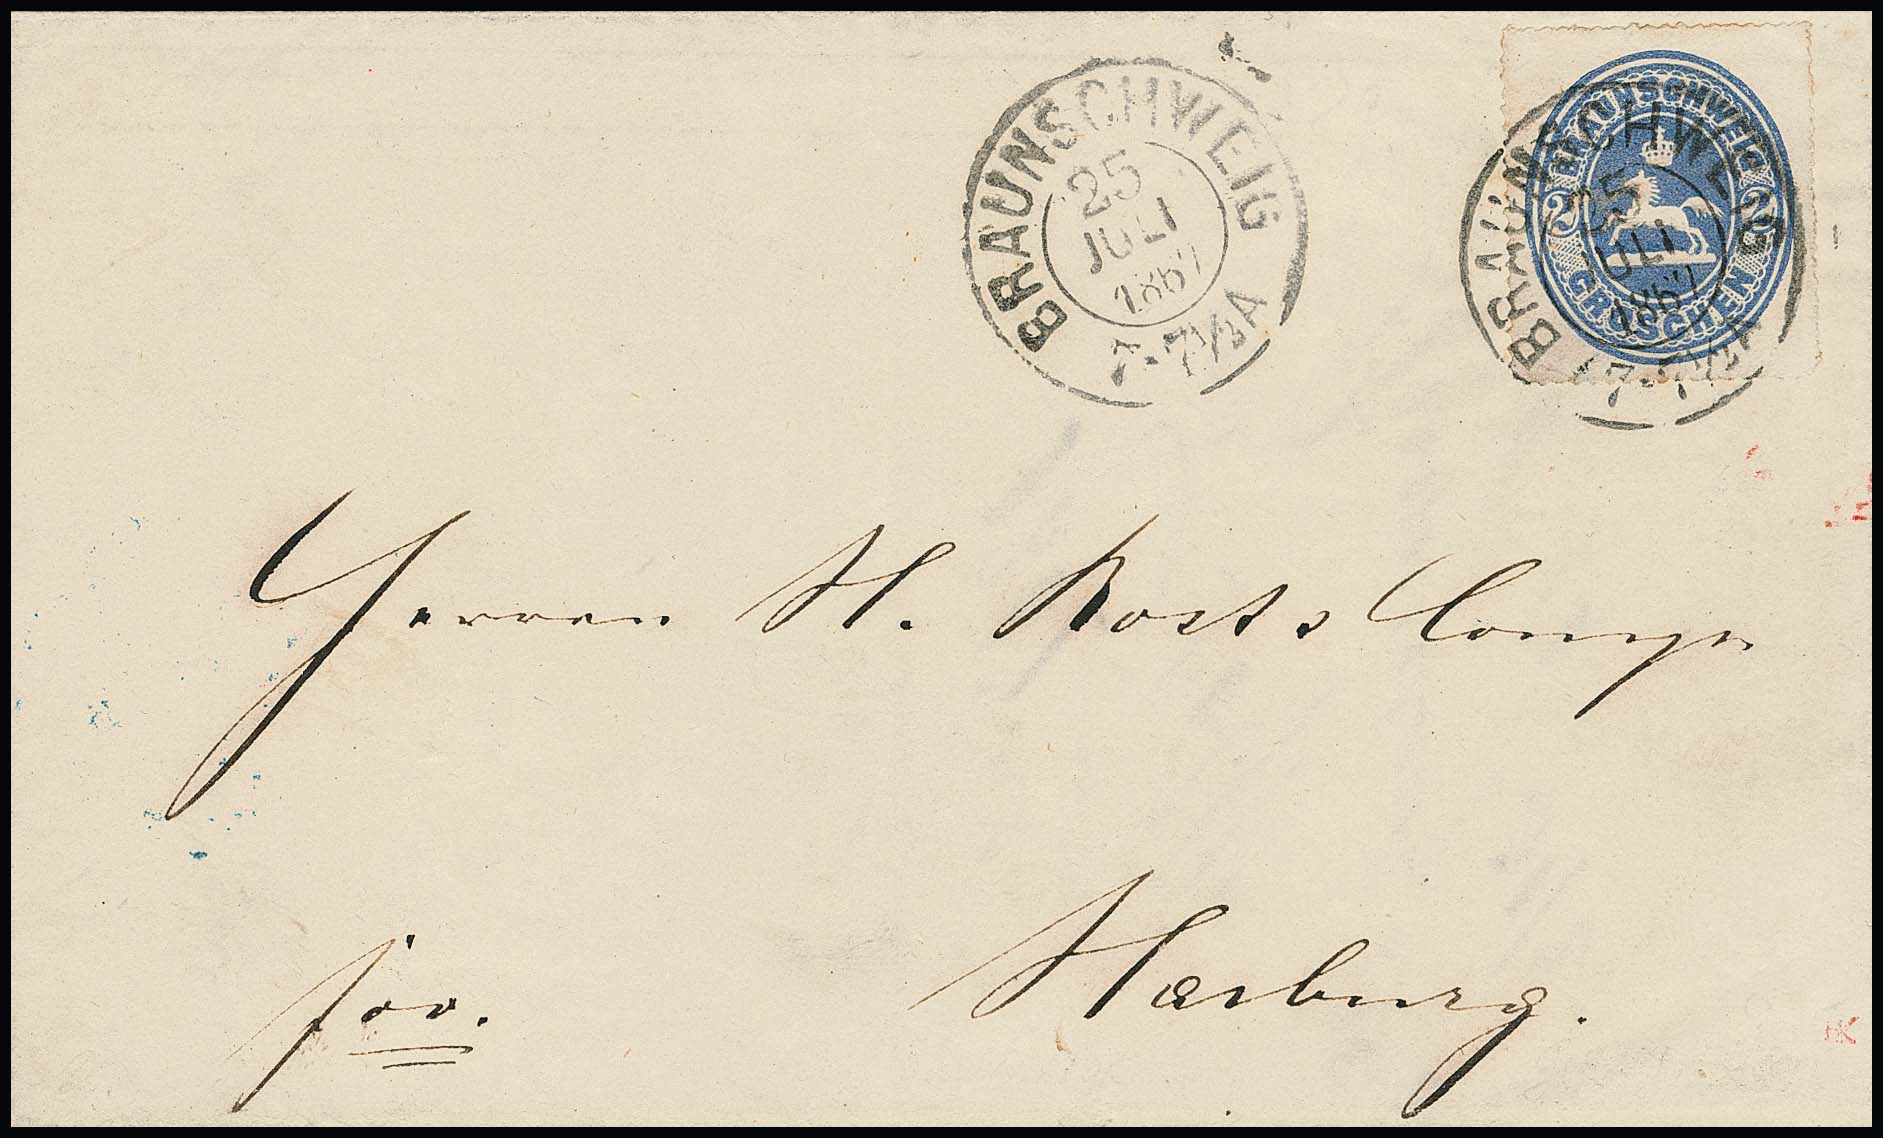 BRAUNSCHWEIG
25
JULI
1867
7-7½A
BRAUNSCHWEIG
2 2
GROSCHEN
BRAUNSCHWEIG
25
JULI
1867
7-7½A
Herren H. Rost & Comp
fro. Harburg.